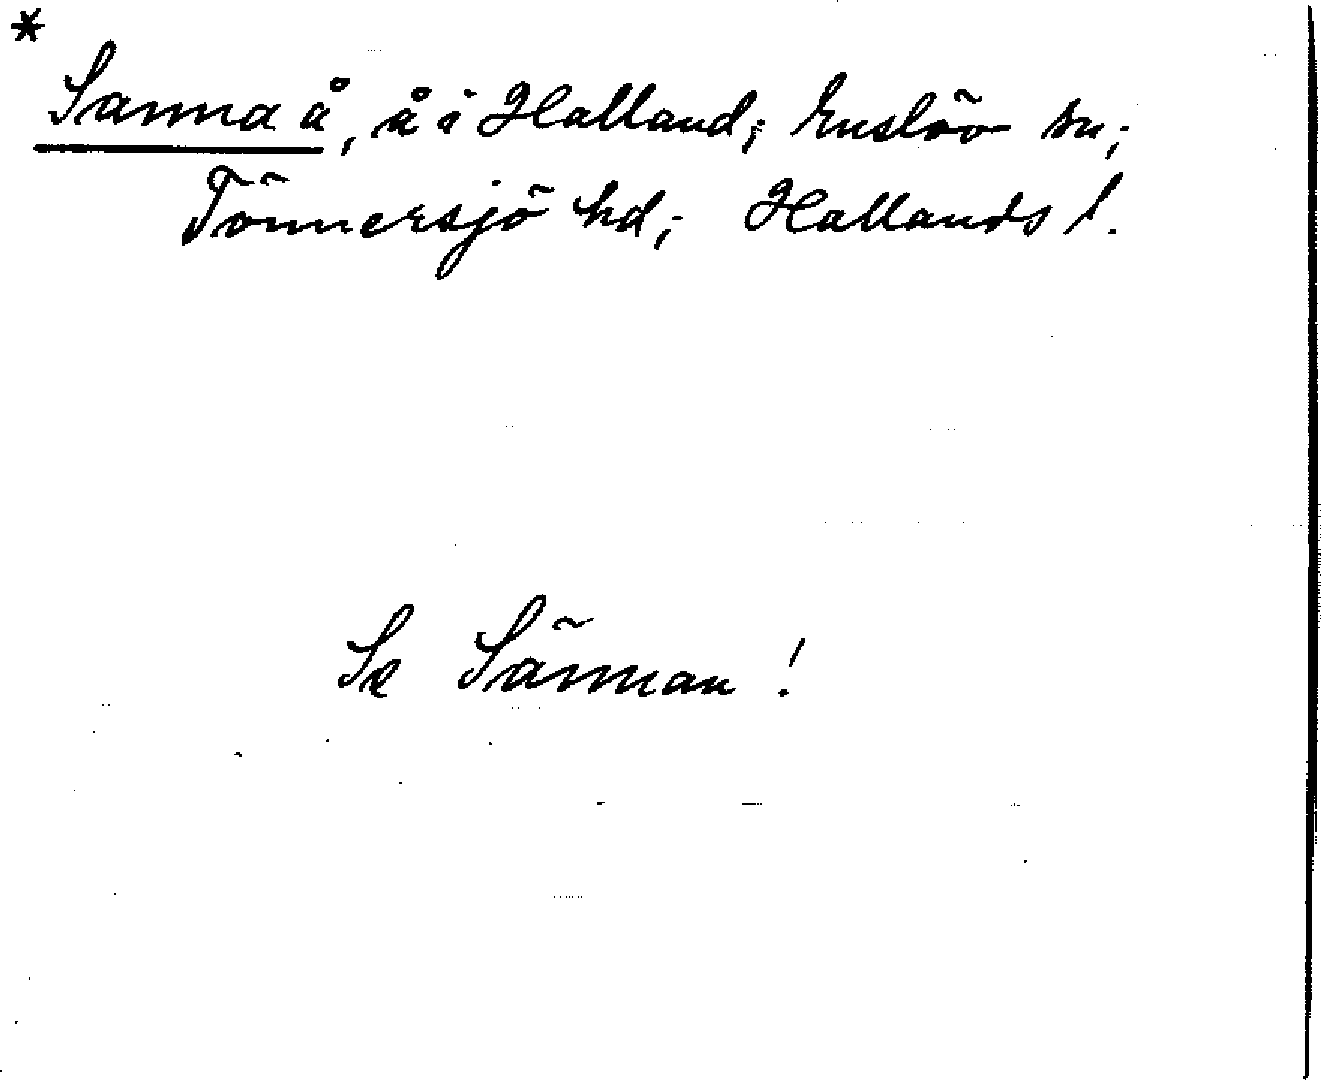 *
Sanna å, å i Halland; Enslöv sn;
Tönnersjö hd; Hallands l.
Se Sännan!